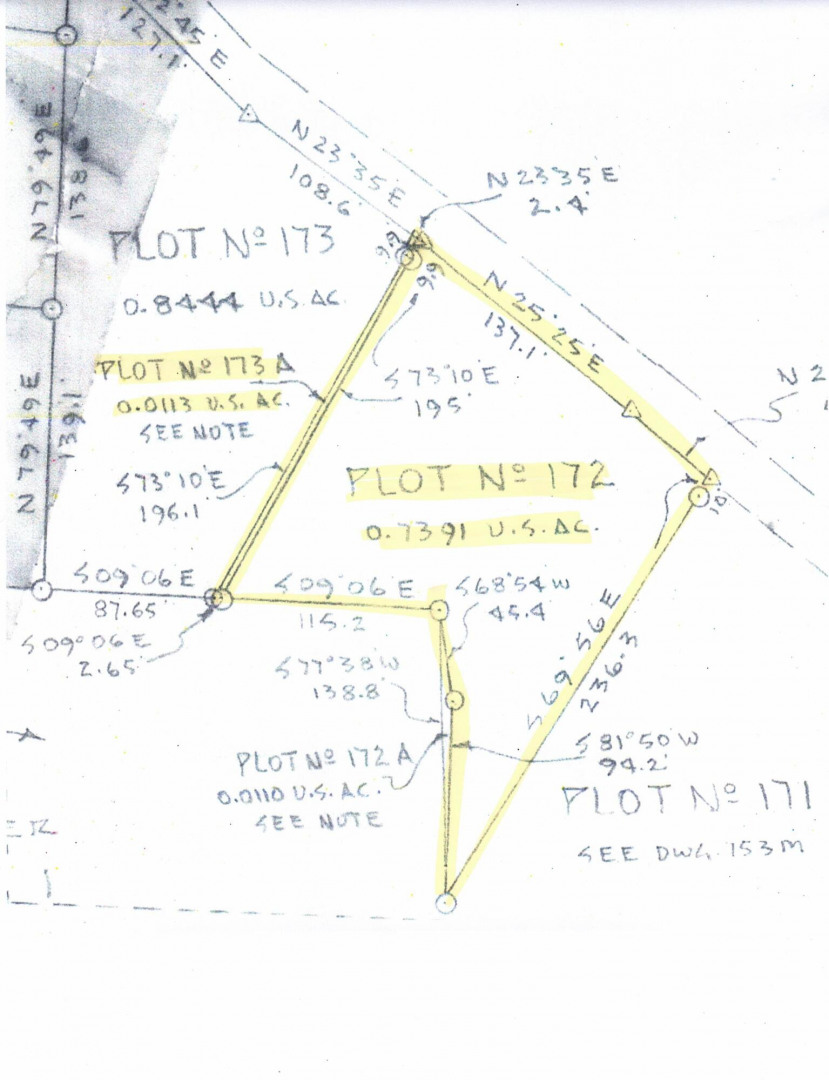 2°45' E
127.1'
N 23°35' E
108.6'
N 23 35' E
2.4'
N79°49'E
138.
PLOT Nº 173
0.8444 U.S. AC.
9.9
9.9
N 25°25' E
137.1'
PLOT Nº 173 A
0.0113 U.S. AC.
SEE NOTE
S73°10'E
195'
N 2
N79°49E
139.1'
S73°10'E
196.1'
PLOT Nº 172
0.7391 U.S. AC.
10'
S09°06 E
87.65'
S09°06' E
115.2
S68°54 W
45.4'
S09°06 E
2.65'
S77°38 W
138.8'
S69°56 E
236.3
S81°50' W
94.2'
PLOT Nº 172 A
0.0110 U.S. AC.
SEE NOTE
PLOT Nº 171
SEE DWG. 153M
ER